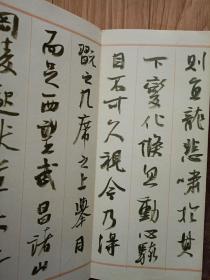 則魚龍悲嘯於其
下變化倏忽動心駭
目不可久視今乃得
翫之几席之上舉目
而足西望武昌諸山
岡陵起伏草木